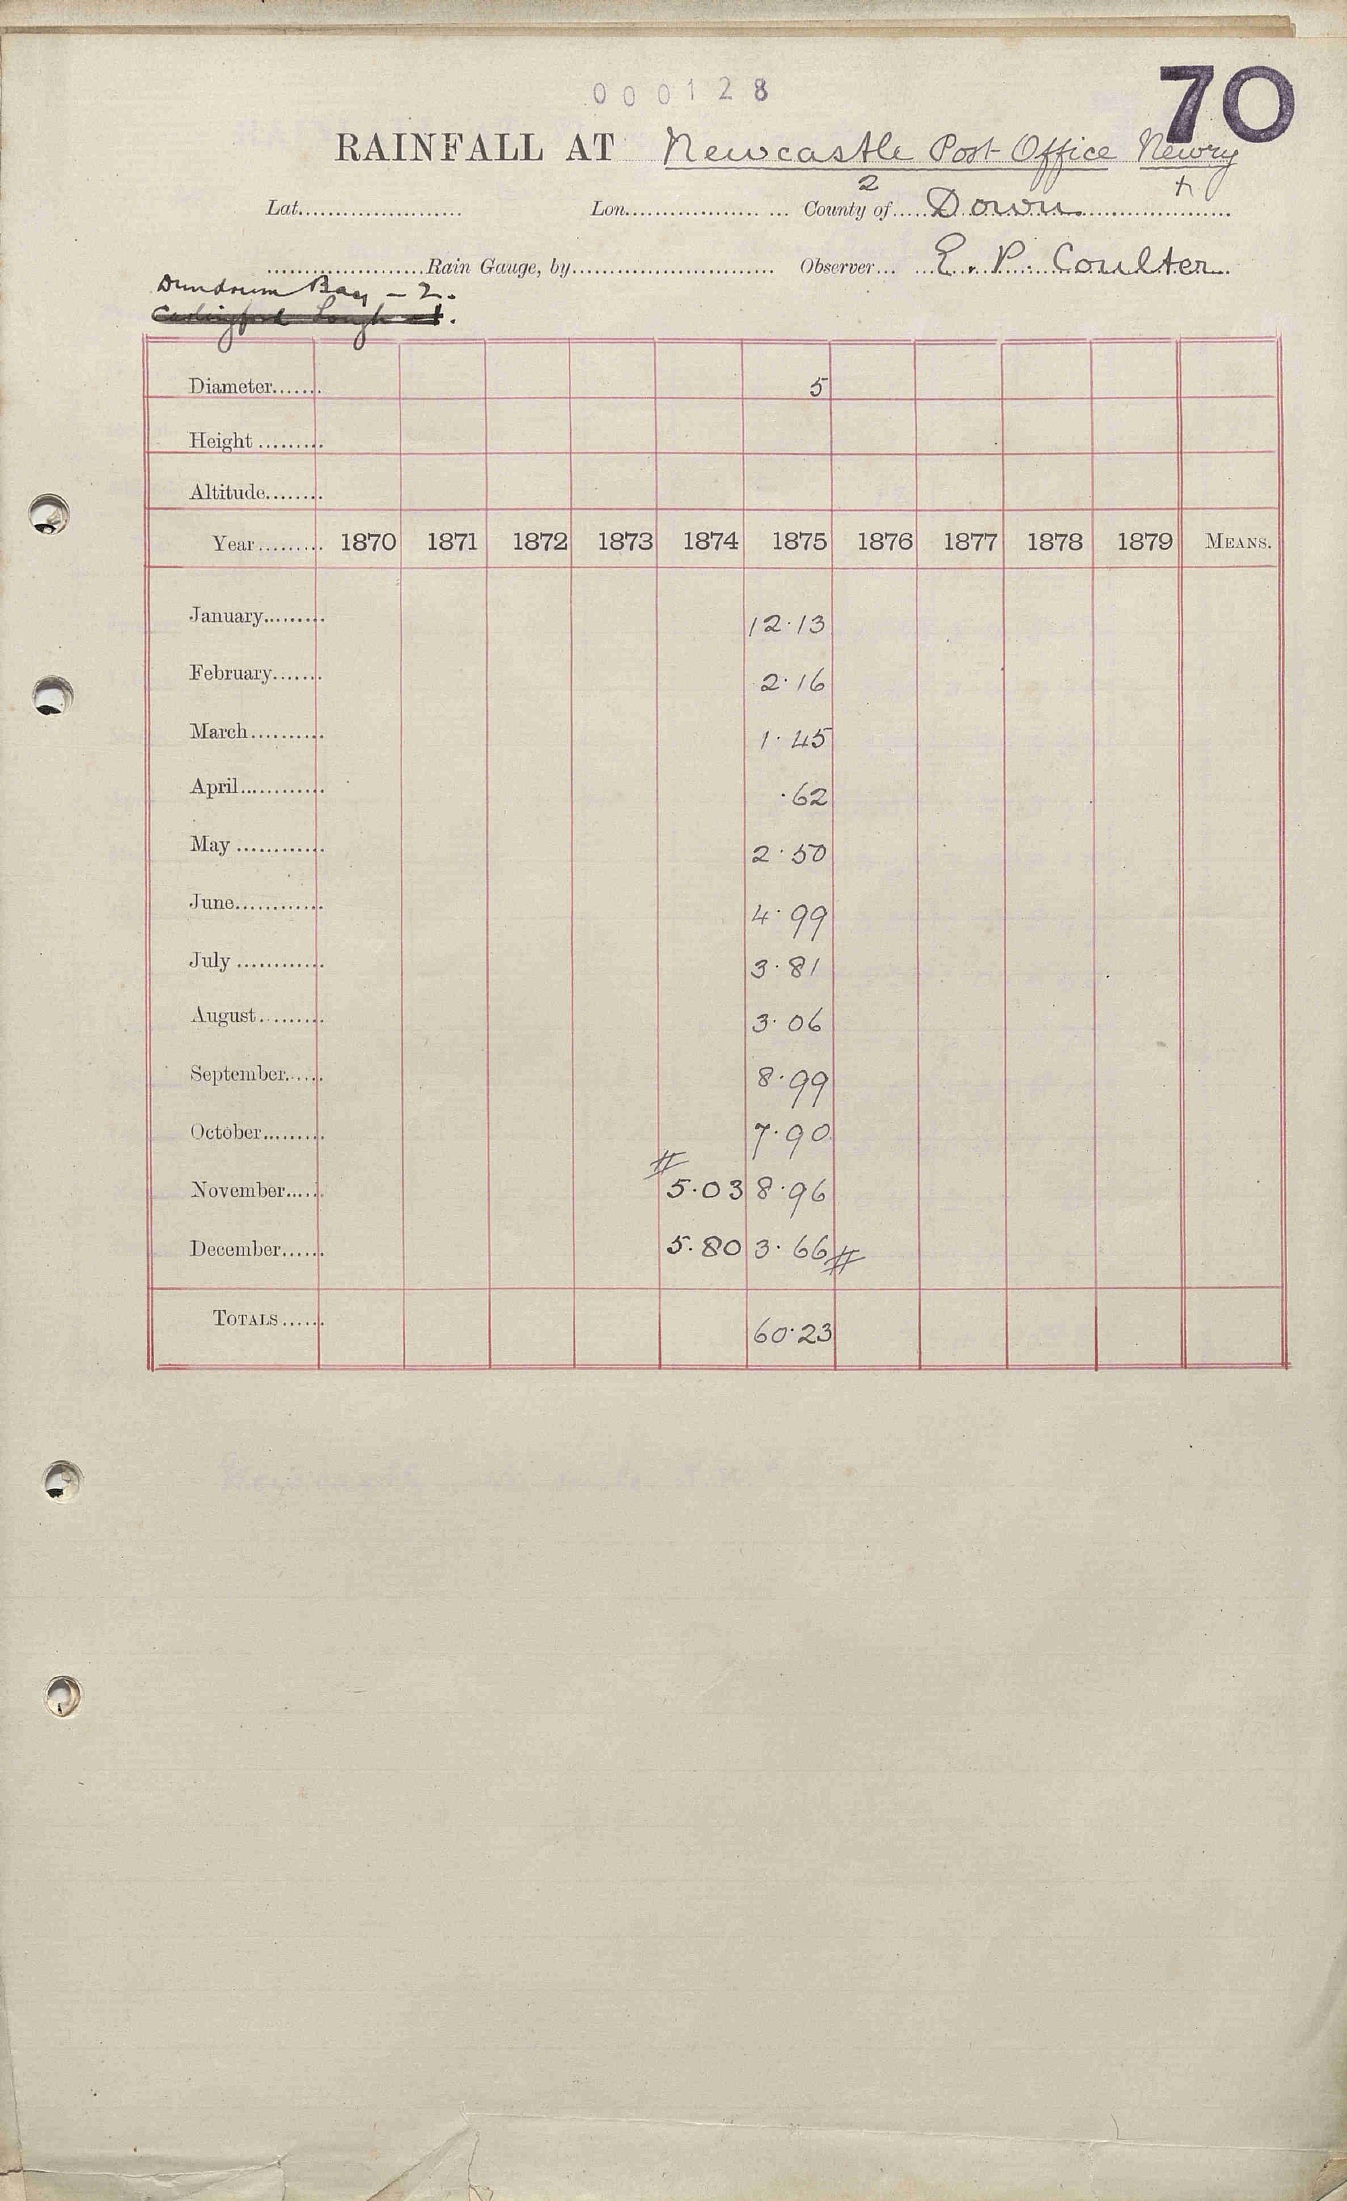 70
000128
RAINFALL AT Newcastle Post Office Newry
2
Lat...................... Lon.................. ... County of.....Down....................
.....................Rain Gauge, by........................... Observer... ...E. P. Coulter...
Dundrum Bay - 2.
Carlingford Lough - 1.
Diameter....... 5
Height .........
Altitude........
Year......... 1870 1871 1872 1873 1874 1875 1876 1877 1878 1879 MEANS.
January......... 12.13
February....... 2.16
March.......... 1.45
April............ .62
May ............ 2.50
June............ 4.99
July ............ 3.81
August......... 3.06
September...... 8.99
October......... 7.90
November...... # 5.03 8.96
December...... 5.80 3.66 #
TOTALS...... 60.23